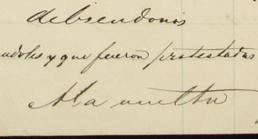 debiendonos
adoles y que fueron protestadas
A la vuelta